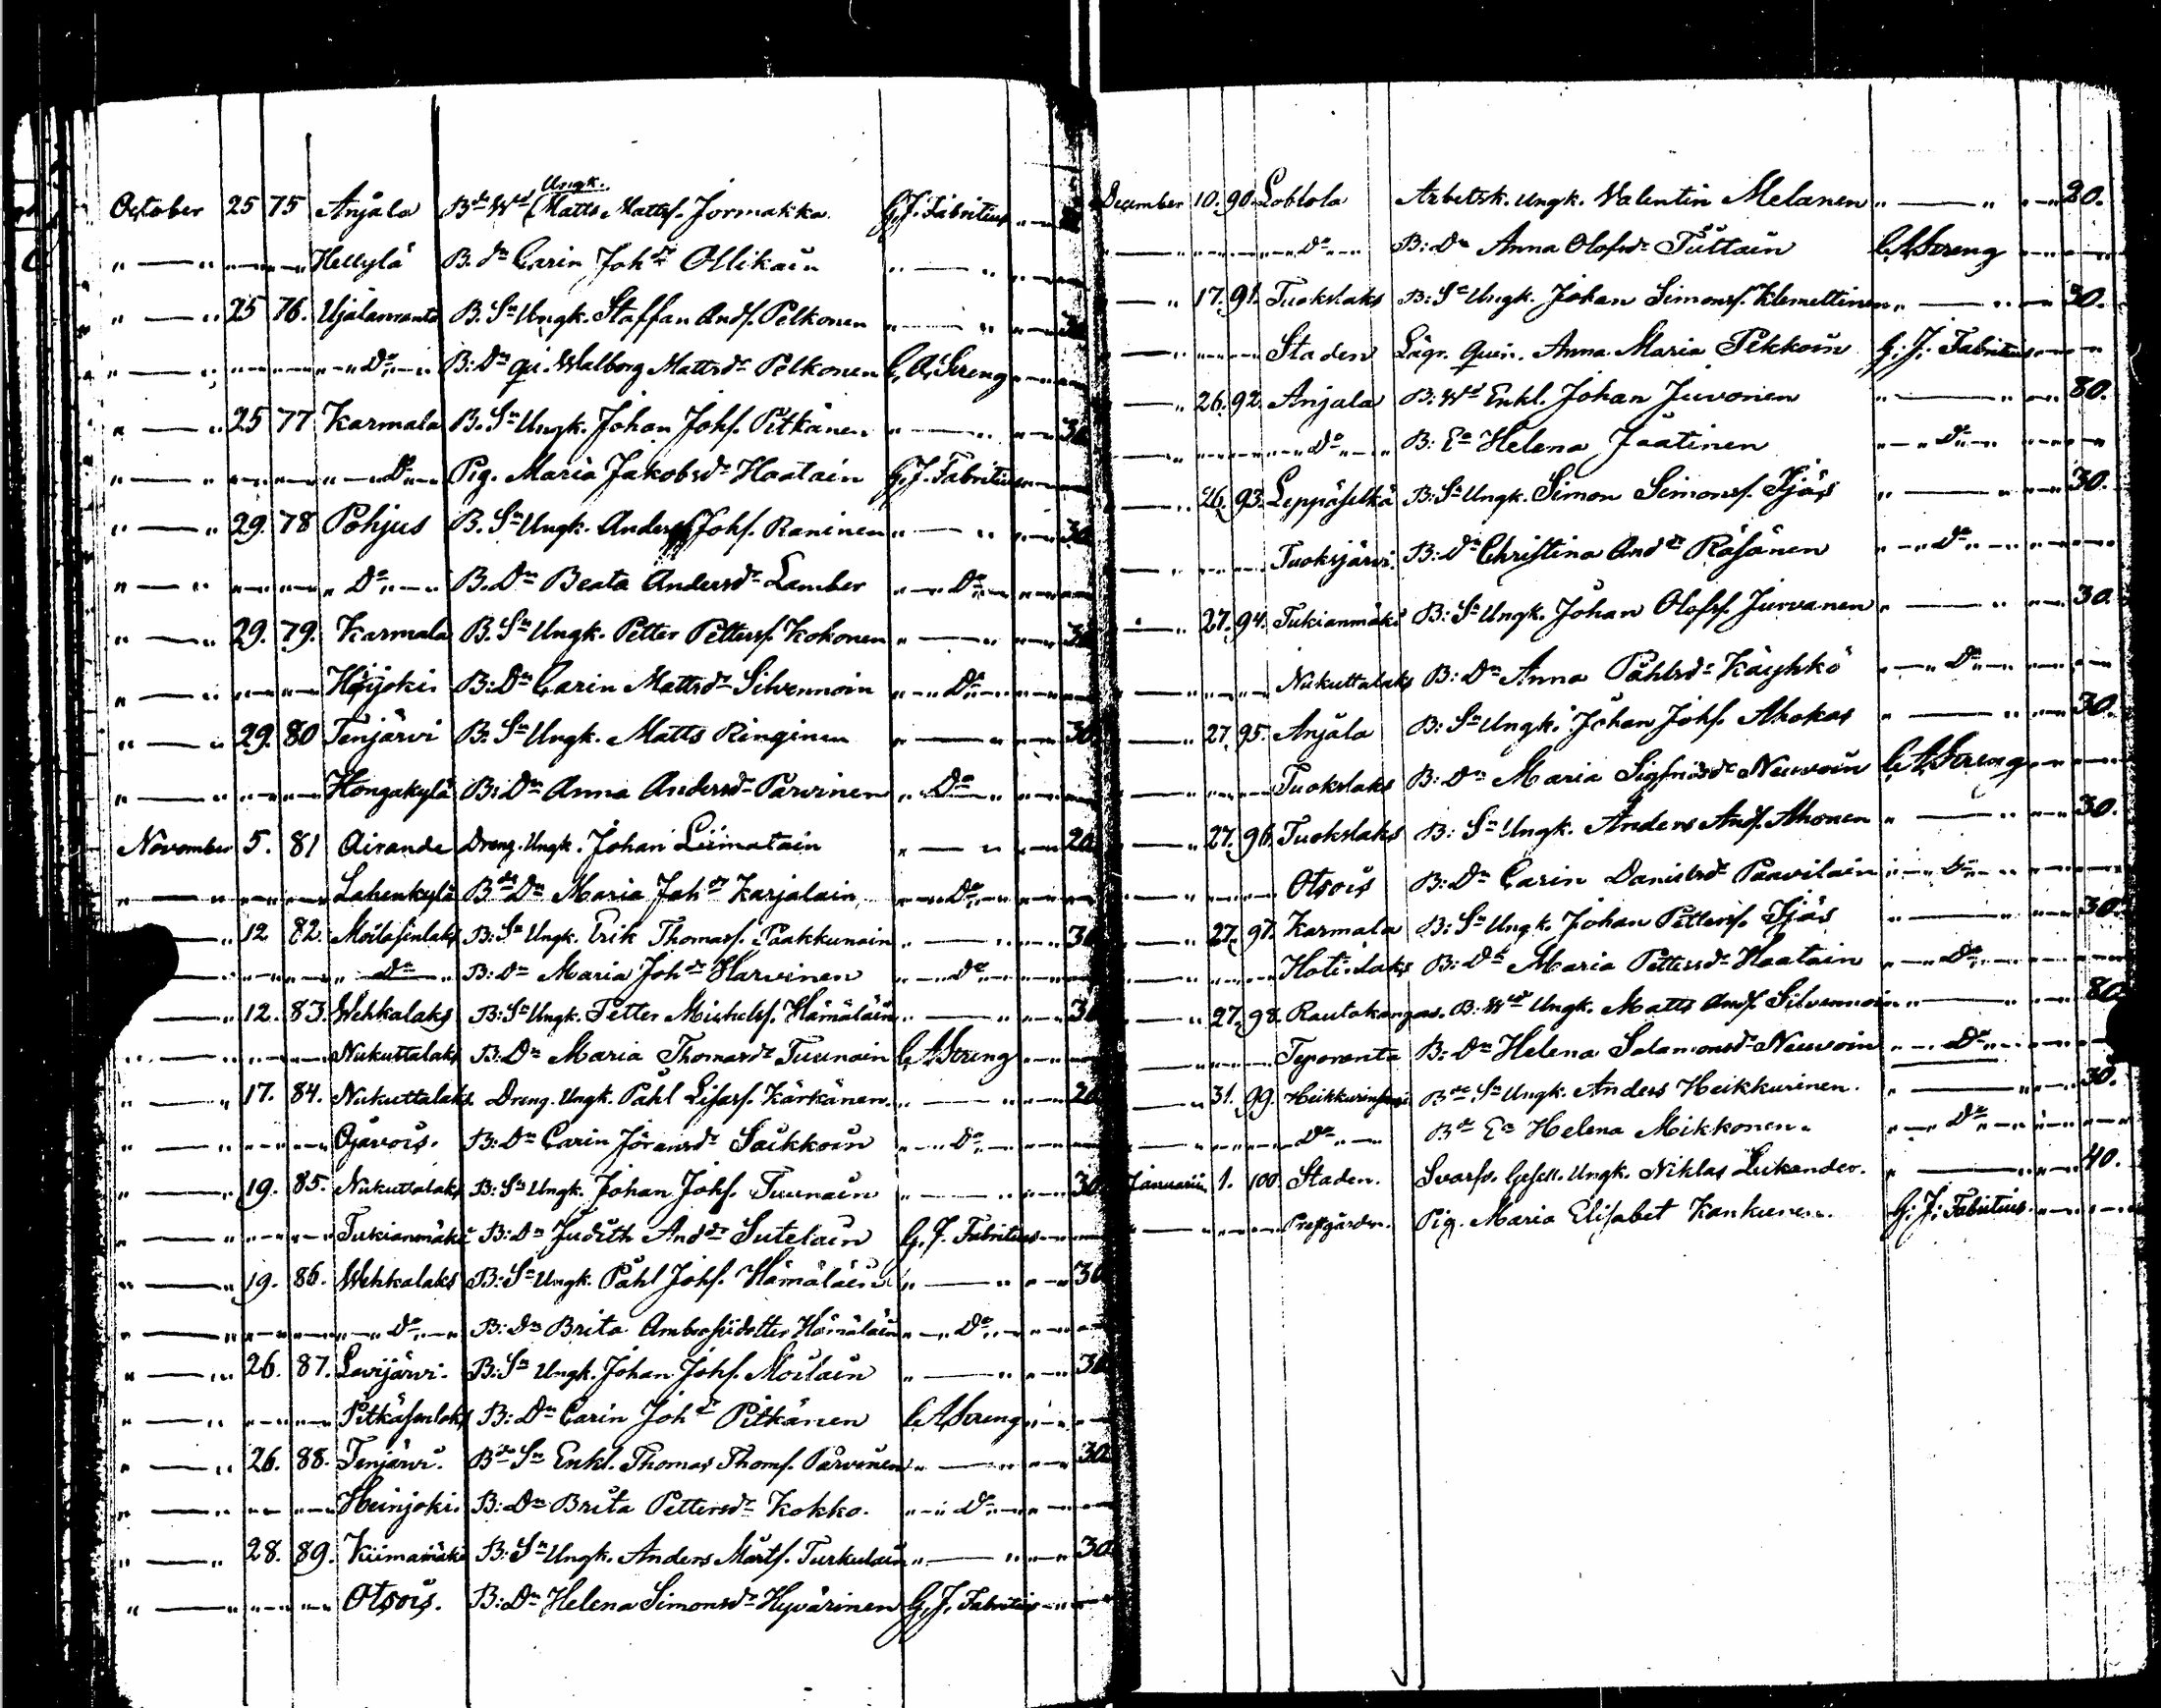 October 25 75 Anjala B:de W:d Ungk. Matts Mattss. Jormakka G. J. Fabritius
" — " " — " — Hellylä B. D:n Carin Joh:dr Ollikain " — "
" — " 25 76. Ujalanranta B. S:n Ungk. Staffan Ands. Pelkonen " — " 30
" — " " — " — D:o B: D:n qvi. Walborg Mattsd:r Pelkonen C. A. Streng
" — " 25 77 Karmala B. S:n Ungk. Johan Johs. Pitkänen " — " 30
" — " " — " — D:o Pig. Maria Jakobsd:r Haatain G. J. Fabritius
" — " 29. 78 Pohjus B. S:n Ungk. Anders Johs. Raninen " — " 30
" — " " — " — D:o B. D:n Beata Andersd:r Lamber " — D:o
" — " 29. 79. Karmala B. S:n Ungk. Petter Petterss. Kokonen " — " 30
" — " " — " — Häijoki. B: D:n Carin Mattsd:r Silvennoin " — D:o
" — " 29. 80 Tenjärvi B. S:n Ungk. Matts Ringinen " — " 30
" — " " — " — Hongakylä B: D:n Anna Andersd:r Parvinen " D:o
November 5. 81 Airande Dreng. Ungk. Johan Liimatain " — " 20
" — " " — " — Lahenkylä B:de D:n Maria Joh:dr Karjalain " — D:o
— " 12. 82. Moilasenlaks B: S:n Ungk. Erik Thomass. Paakkunain " — " 30
— " " — " — D:o B: D:n Maria Joh:dr Harvinen " — D:o
— " 12. 83. Wehkalaks B: S:n Ungk. Petter Michelss. Hämäläin " — " 30
" — " " — " — Nukuttalaks B: D:n Maria Thomasd:r Tuunain C. A. Streng
" — " 17. 84. Nukuttalaks Dreng. Ungk. Påhl Lisass. Kärkänen. " — " 20
" — " " — " — Ojavois. B: D:n Carin Jöransd:r Saikkoin " — D:o
" — " 19. 85. Nukuttalaks B: S:n Ungk. Johan Johs. Tuunain " — " 30
" — " " — " — Tukianmäki B: D:n Judith And:dr Sutelain G. J. Fabritius
" — " 19. 86. Wehkalaks B: S:n Ungk. Påhl Johs. Hämäläin " — " 30
" — " " — " — D:o B: D:n Brita Ambrosidotter Hämäläin " — D:o
" — " 26. 87. Lavijärvi. B: S:n Ungk. Johan Johs. Moilain " — " 30
" — " " — " — Pitkäsenlaks B: D:n Carin Joh:dr Pitkänen C. A. Streng
" — " 26. 88. Tenjärvi. B:de S:n Enkl. Thomas Thoms. Parvinen " — " 30
" — " " — " — Heinjoki. B: D:n Brita Pettersd:r Kokko. " — D:o
" — " 28. 89. Kiimamäki B: S:n Ungk. Anders Mårts. Turkulain " — " 30
" — " " — " — Otsois. B: D:n Helena Simonsd:r Hyvärinen G. J. Fabritius
December 10. 90. Loblola Arbetsk. Ungk. Valentin Melanen " — " 20.
" — " — D:o B: D:n Anna Olofsd:r Tiittain C. A. Streng
— " 17. 91. Tuokslaks B: S:n Ungk. Johan Simonss. Klemettinen " — " 30.
— " " — Staden Lägr. Qvin. Anna Maria Pekkoin G. J. Fabritius
— " 26. 92. Anjala B: W:d Enkl. Johan Juvonen " — " 80.
— " " — D:o B: E:a Helena Jäätinen " — D:o
— " 26. 93. Leppäselkä B: S:n Ungk. Simon Simonss. Ijäs " — " 30.
— " " — Tuoksjärvi. B: D:n Christina And:dr Räsänen " — D:o
— " 27. 94. Tukianmäki B: S:n Ungk. Johan Olofss. Jurvanen " — " 30.
— " " — Nukuttalaks B: D:n Anna Påhlsd:r Käyhkö " — D:o
— " 27. 95. Anjala B: S:n Ungk. Johan Johs. Ahokas " — " 30.
— " " — Tuokslaks B: D:n Maria Sigfridsd:r Neuvoin C. A. Streng
— " 27. 96. Tuokslaks B: S:n Ungk. Anders Ands. Ahonen " — " 30.
— " " — Otsois B: D:n Carin Danielsd:r Paavilain " — D:o
— " 27. 97. Karmala B: S:n Ungk. Johan Petterss. Ijäs " — " 30.
— " " — Hotinlaks B: D:n Maria Pettersd:r Haatain " — D:o
— " 27. 98. Rautakangas. B: W:d Ungk. Matts Ands. Silvennoin " — " 80.
— " " — Teporanta B: D:n Helena Salamonsd:r Neuvoin " — D:o
— " 31. 99. B:de S:n Ungk. Anders Heikkurinen. " — " 30.
— " " — D:o B:de E:a Helena Mikkonen. " — D:o
Januarii 1. 100. Staden. Svarfv. Gesell. Ungk. Niklas Lukander. " — " 40.
" — " — Prestgården. Pig. Maria Elisabet Kankunen. G. J. Fabritius